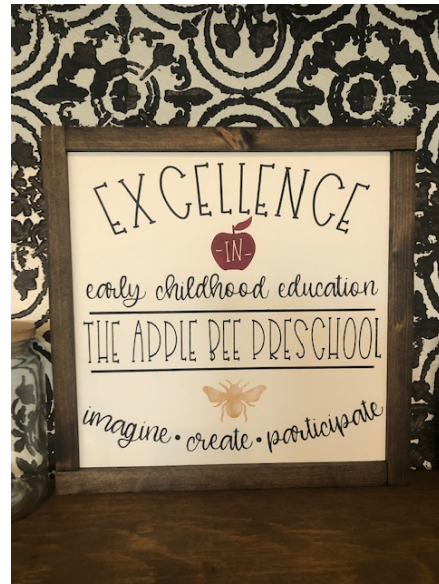 EXCELLENCE
-IN-
early childhood education
THE APPLE BEE PRESCHOOL
imagine • create • participate